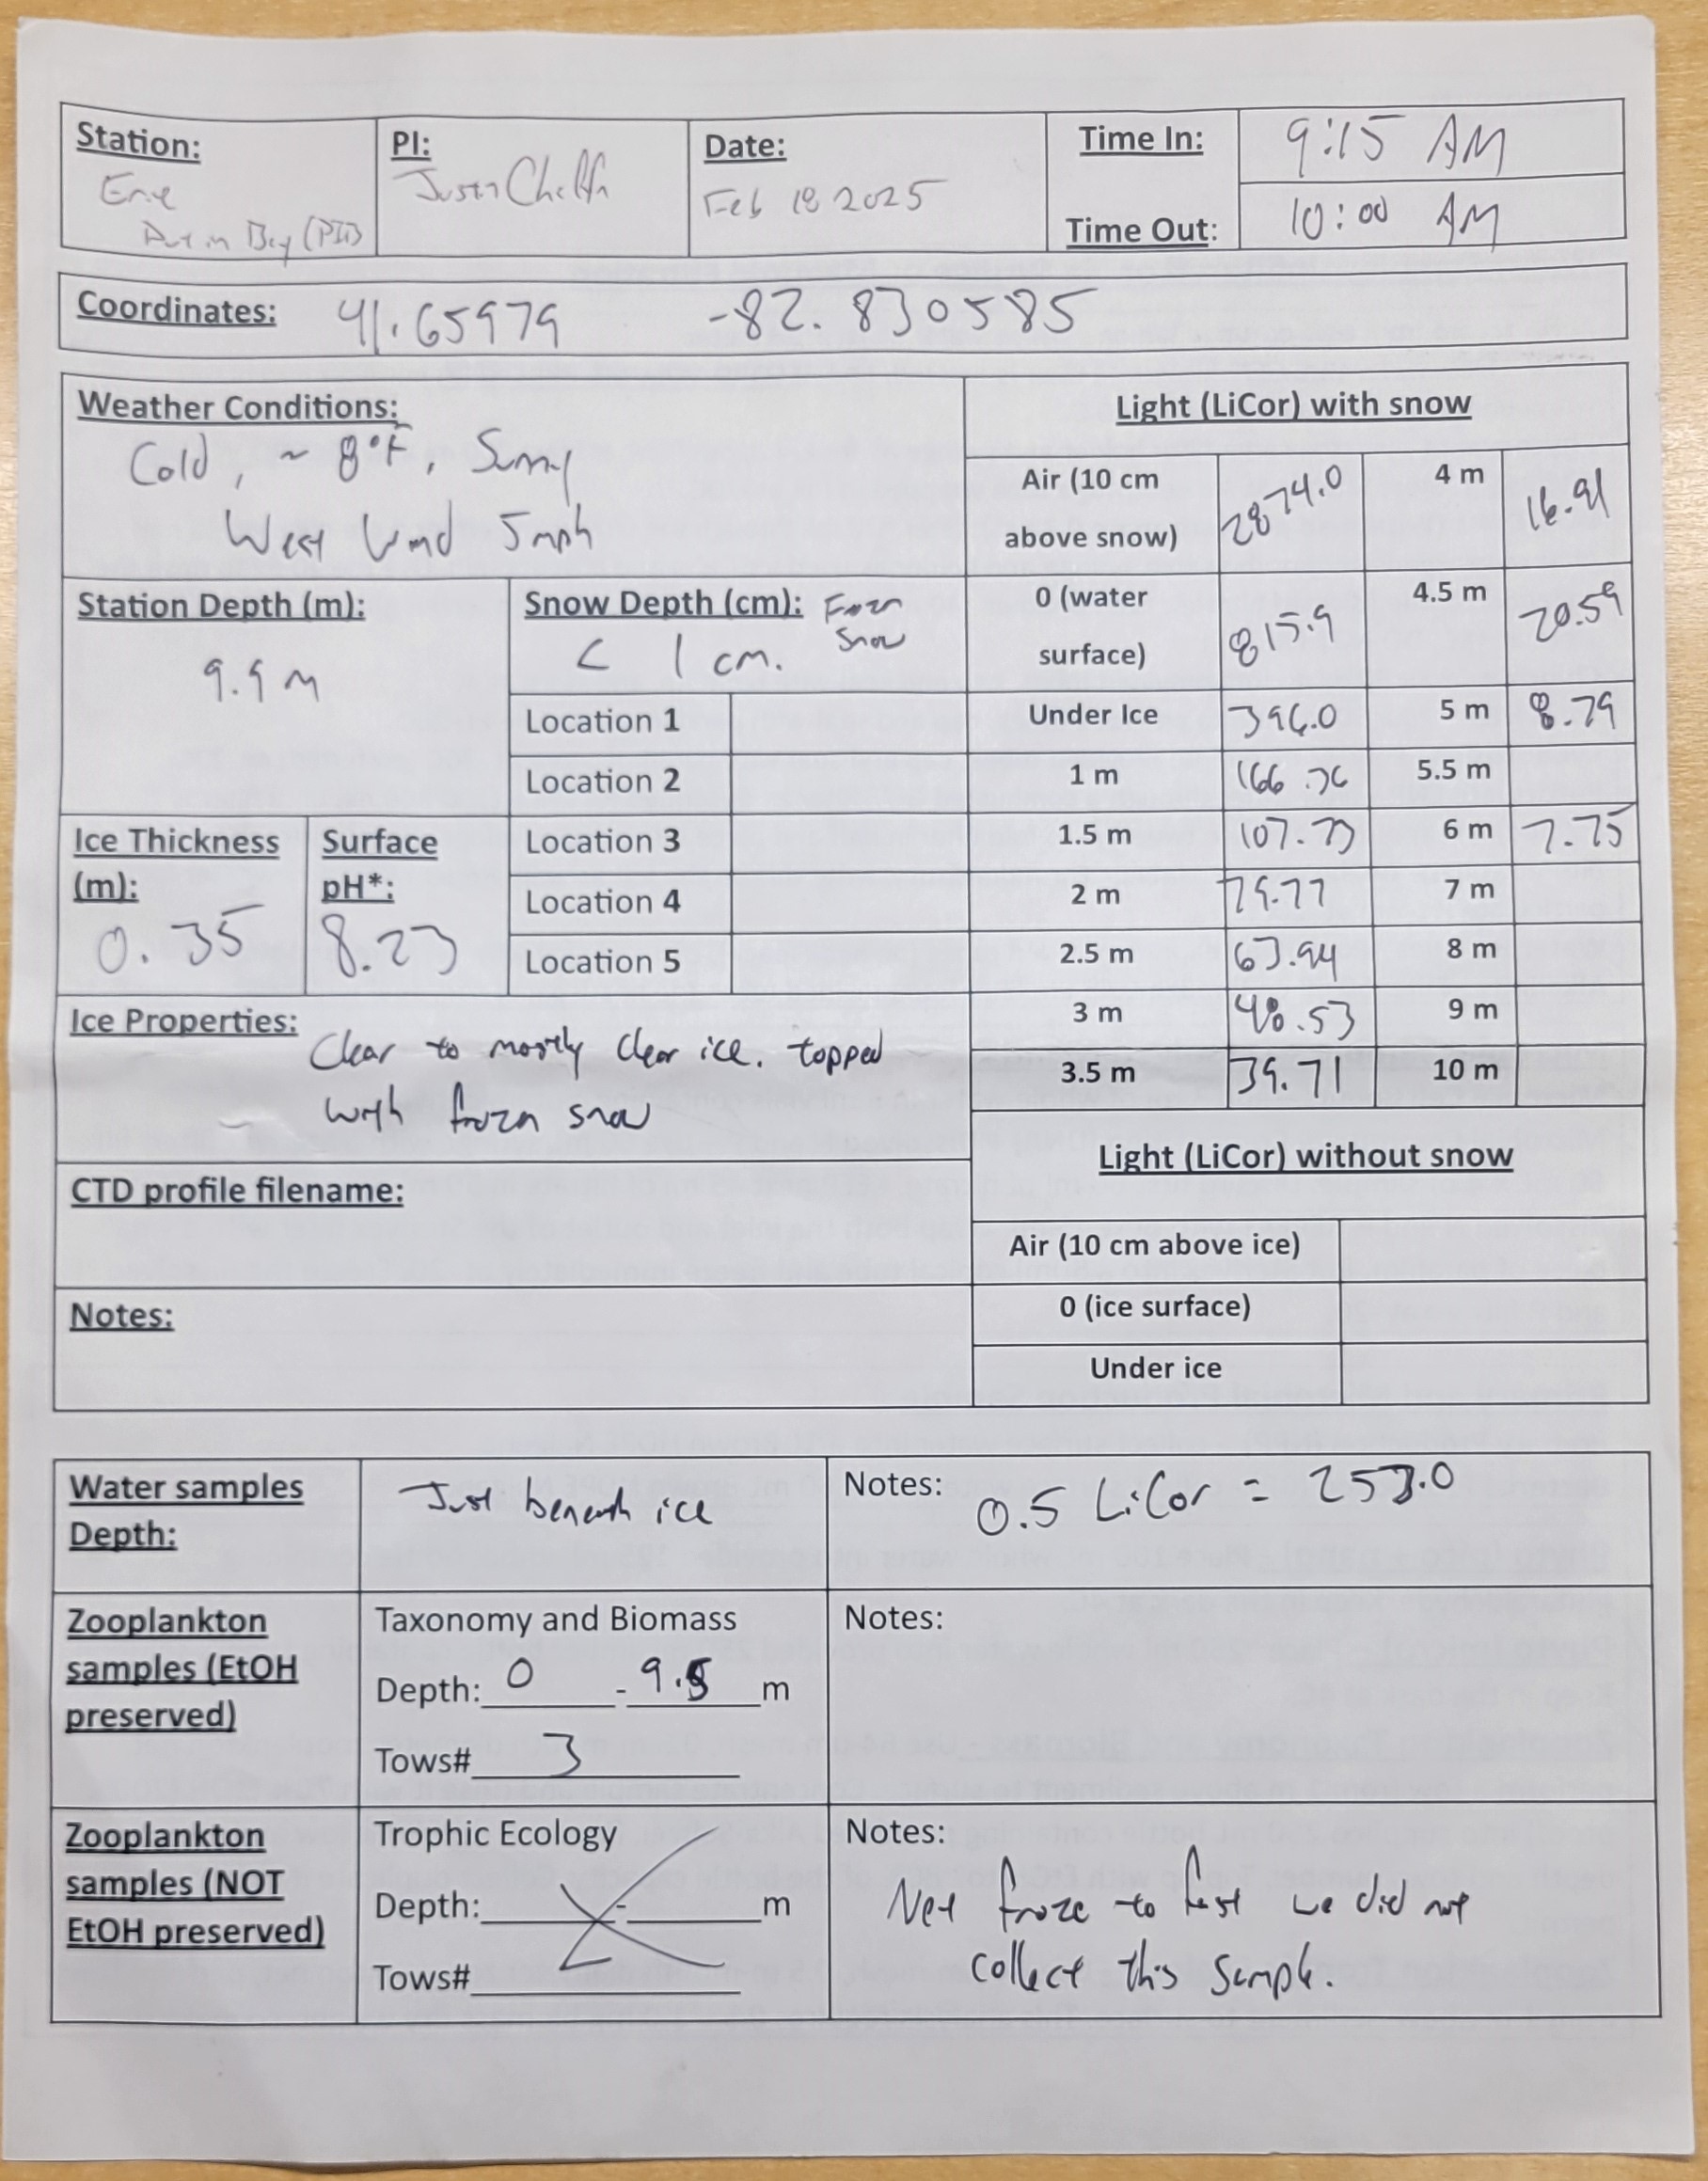 Station:
Erie
Put in Bay (PIB)
PI:
Justin Chaffin
Date:
Feb 18 2025
Time In:
9:15 AM
Time Out:
10:00 AM
Coordinates: 41.65979 -82.830585
Weather Conditions:
Cold, ~ 8°F, Sunny
West Wind 5mph
Station Depth (m):
9.9 m
Snow Depth (cm): Frozn
Snow
< 1 cm.
Location 1
Location 2
Location 3
Location 4
Location 5
Ice Thickness
(m):
0.35
Surface
pH*:
8.23
Ice Properties:
Clear to mostly clear ice. topped
with frozn snow
CTD profile filename:
Notes:
Light (LiCor) with snow
Air (10 cm
above snow) 2874.0 4 m 16.91
0 (water
surface) 815.9 4.5 m 20.59
Under Ice 396.0 5 m 8.79
1 m 166.76 5.5 m
1.5 m 107.73 6 m 7.75
2 m 79.77 7 m
2.5 m 63.94 8 m
3 m 48.53 9 m
3.5 m 39.71 10 m
Light (LiCor) without snow
Air (10 cm above ice)
0 (ice surface)
Under ice
Water samples
Depth:
Just beneath ice
Notes: 0.5 LiCor = 253.0
Zooplankton
samples (EtOH
preserved)
Taxonomy and Biomass
Depth: 0 - 9.5 m
Tows# 3
Notes:
Zooplankton
samples (NOT
EtOH preserved)
Trophic Ecology
Depth: - m
Tows#
Notes:
Net froze to fast we did not
collect this sample.